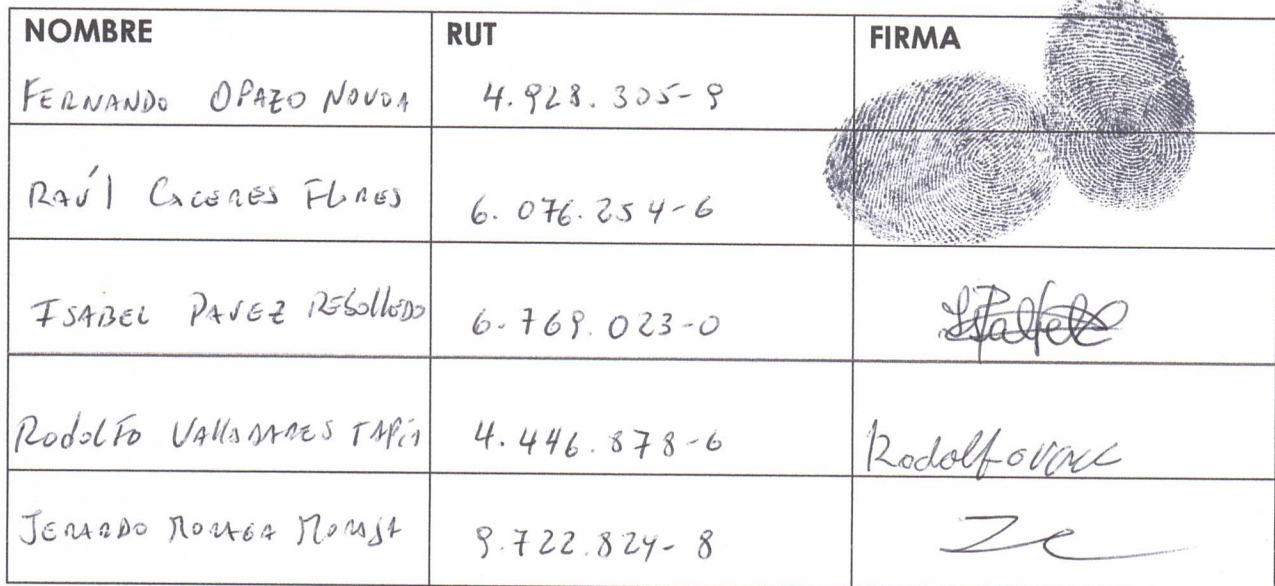 NOMBRE RUT FIRMA
FERNANDO OPAZO NOVOA 4.928.305-9
RAÚl CACERES FLORES 6.076.254-6
ISABEL PAVEZ REBOllEDO 6.769.023-0
RodolFo VAllADARES TAPiA 4.446.878-6 Rodolfo
JERARDO MORAGA MORAGA 9.722.824-8